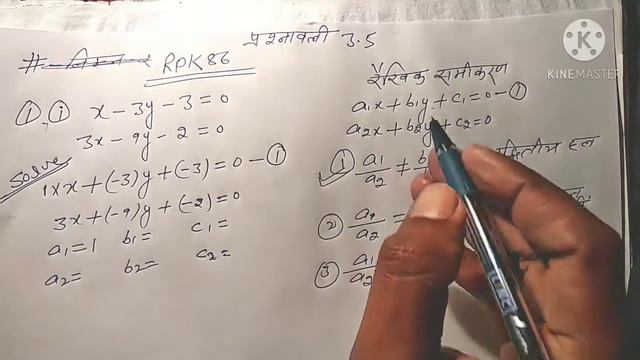 प्रश्नावली 3.5
# RPK86
① ⓘ x - 3y - 3 = 0
3x - 9y - 2 = 0
Solve
1×x + (-3)y + (-3) = 0 - ①
3x + (-9)y + (-2) = 0
a₁ = 1 b₁ = c₁ =
a₂ = b₂ = c₂ =
रैखिक समीकरण
a₁x + b₁y + c₁ = 0 - ①
a₂x + b₂y + c₂ = 0
① a₁/a₂ ≠ b हल
② a₁/a₂ =
③ a₁/a₂
KINEMASTER